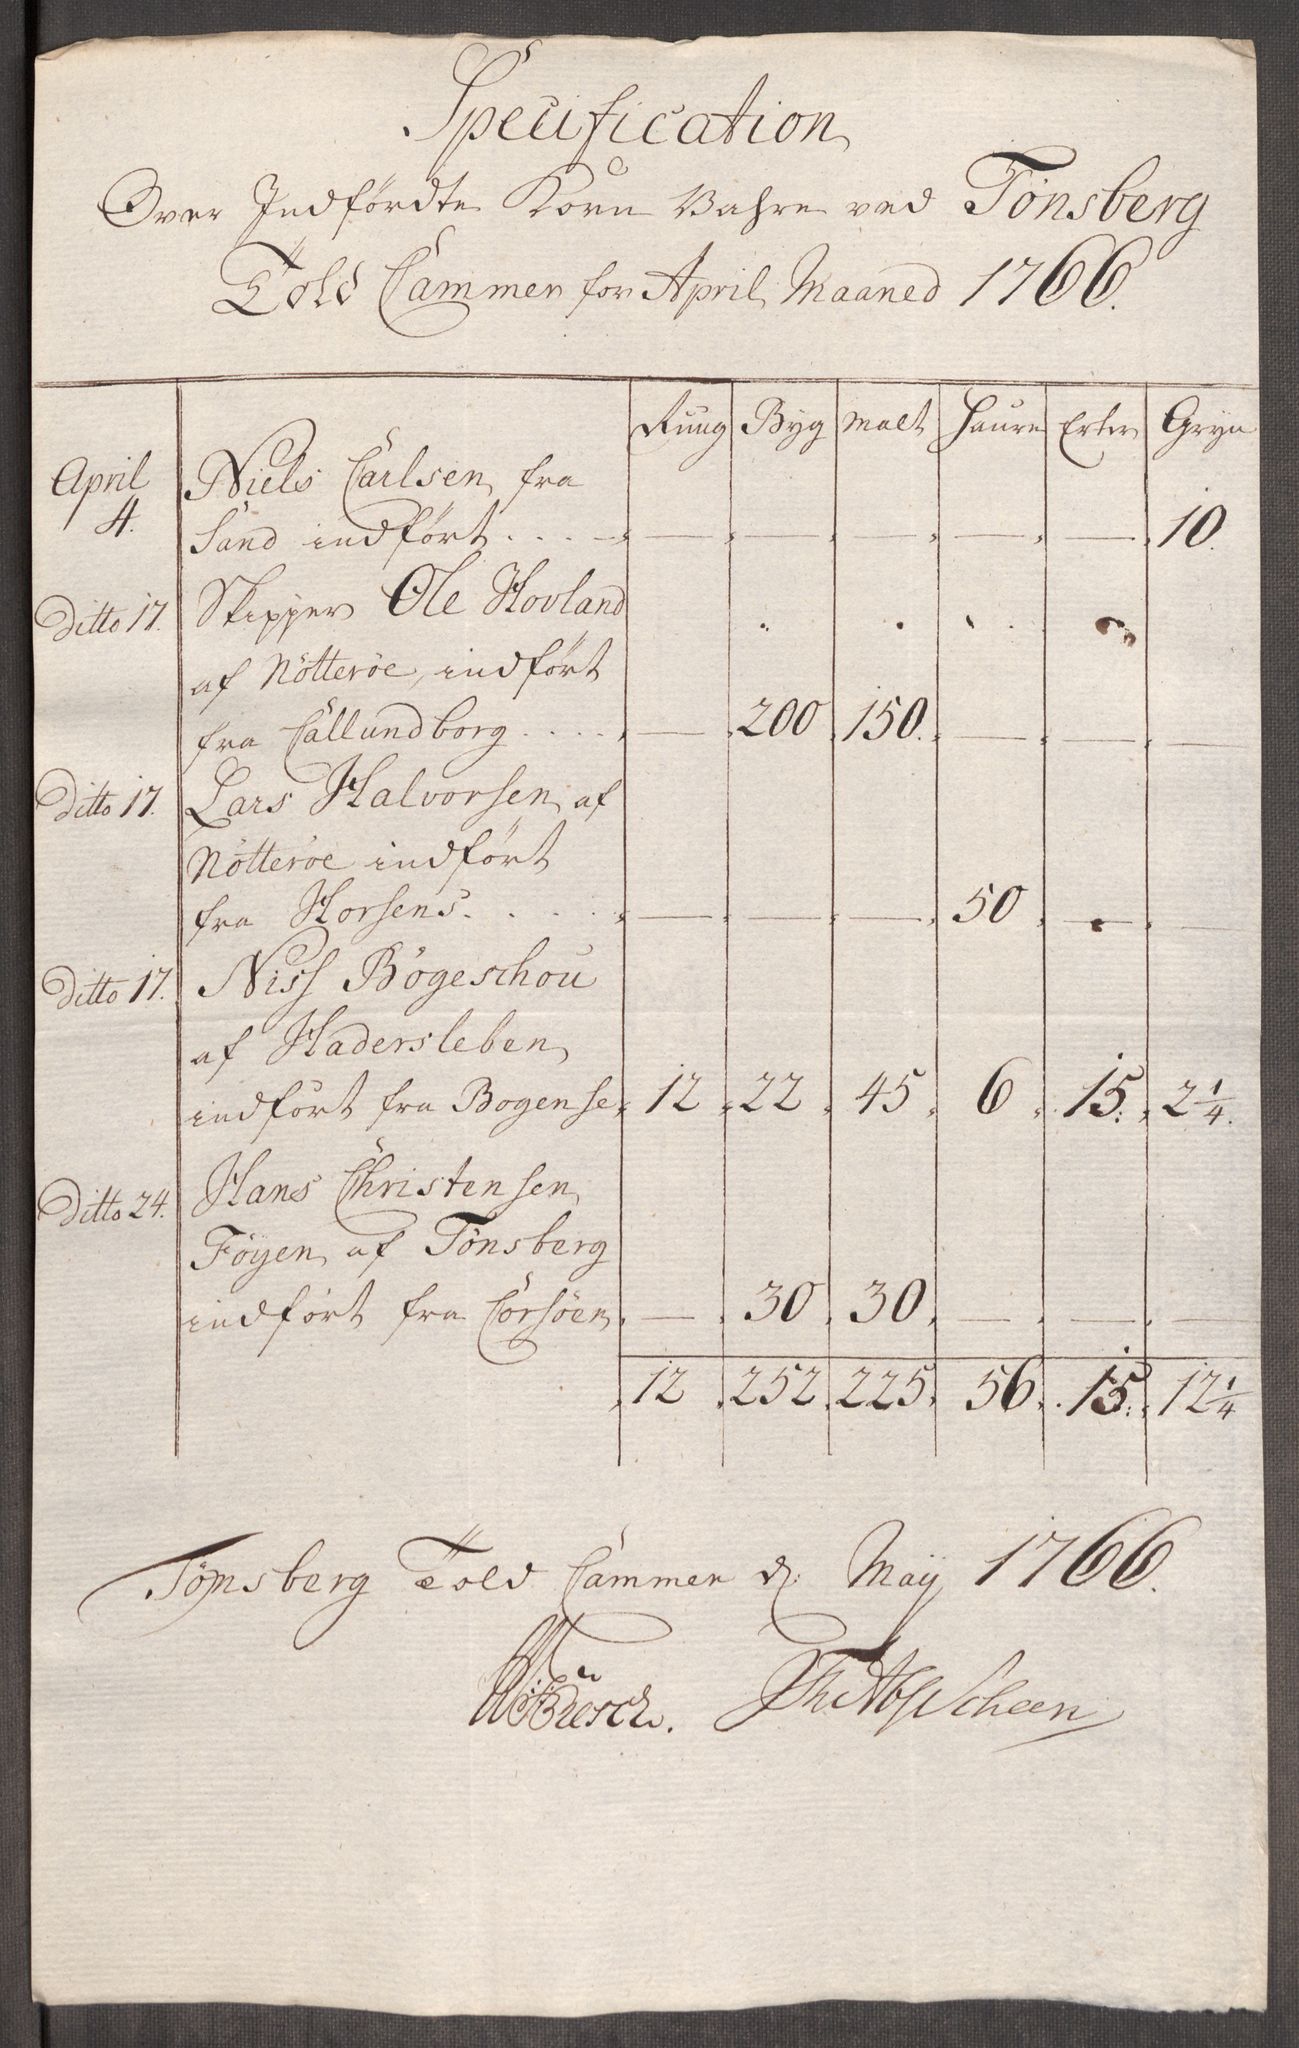 Specification
Over Indførdte Korn Vahre ved Tönsberg
Told Cammer for April Maaned 1766.
Ruug Byg Malt Haure Erter Gryn
April Niels Carlsen fra
4. Sand indført . . . . — — — — — 10.
Ditto 17. Skipper Ole Hovland
af Nötteröe, indført
fra Callundborg . . . . — 200 150. — — —
Ditto 17. Lars Halvorsen af
Nötteröe indført
fra Horsens . . . . — — — 50 — —
Ditto 17. Niss Bögeschou
af Hadersleben
indført fra Bogense 12 22 45 6 15 2 1/4.
Ditto 24. Hans Christensen
Föyen af Tönsberg
indført fra Corsöen — 30 30 — — —
12 252 225 56 15 12 1/4
Tönsberg Told Cammer d: Maij 1766.